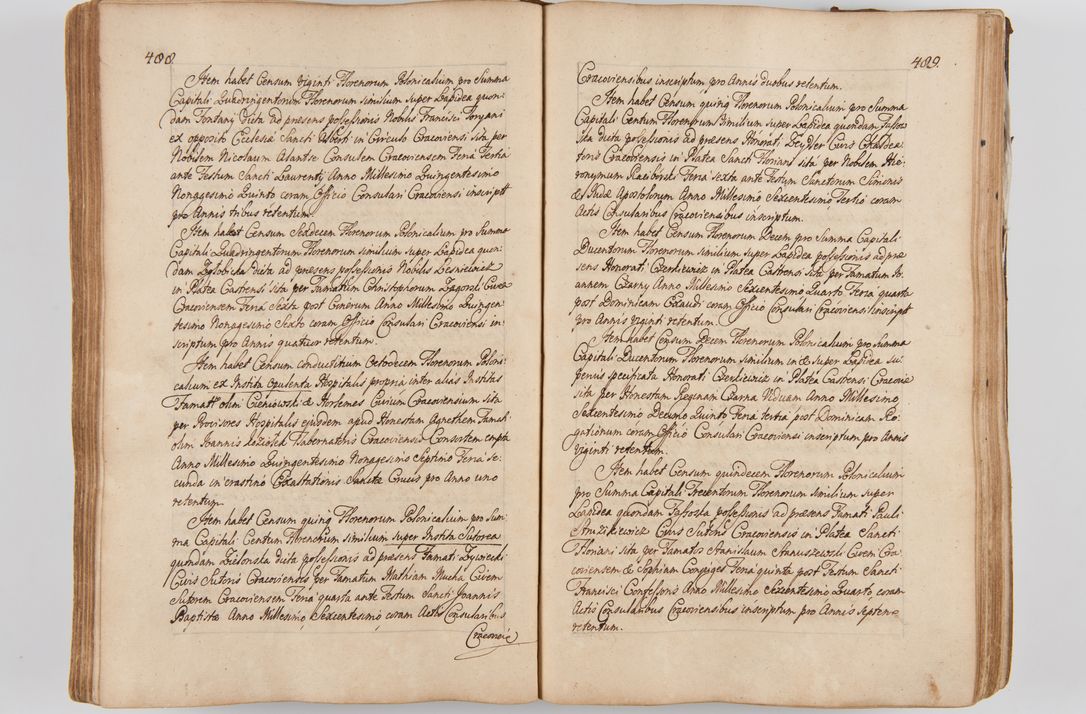 488
Item habet Censum Viginti Florenorum Polonicalium pro Summa
Capitali Quadringentorum Florenorum similium super Lapidea quon-
dam Fontani dicta ad præsens possessionis Nobilis Francisci Toryani
ex opposito Ecclesiæ Sancti Alberti in Circulo Cracoviensi sita per
Nobilem Nicolaum Alantse Consulem Cracoviensem Feria Tertia
ante Festum Sancti Laurentij Anno Millesimo Quingentesimo
Nonagesimo Quinto coram Officio Consulari Cracoviensi inscript
pro Annis tribus retentum.
Item habet Censum Sexdecem Florenorum Polonicalium pro Summa
Capitali Quadringentorum Florenorum similium super Lapidea quon-
dam dicta ad præsens possessionis Nobilis
in Platea Castrensi sita per Famatum Christophorum Zagorski Civem
Cracoviensem Feria Sexta post Cinerum Anno Millesimo Quingen-
tesimo Nonagesimo Sexto coram Officio Consulari Cracoviensi in-
scriptum pro Annis quatuor retentum.
Item habet Censum Octodecem Florenorum Poloni-
calium ex Instita opulenta Hospitalis propria inter alias Institas
Famat olim & Horlemes Civium Cracoviensium sita
per Provisores Hospitalis ejusdem apud Honestam Agnethem Famati
olim Joannis Koziołek Tabernatoris Cracoviensis Consortem empta
Anno Millesimo Quingentesimo Nonagesimo Septimo Feria Se-
cunda in crastino Exaltationis Sanctæ Crucis pro Anno uno
retentum.
Item habet Censum quinq Florenorum Polonicalium pro Sum-
ma Capitali Centum Florenorum similium super Instita Sutorea
quondam Zielonska dicta possessionis ad præsens Famati Zywiecki
Civis Sutoris Cracoviensis per Famatum Mathiam Mucha Civem
Sutorem Cracoviensem Feria quarta ante Festum Sancti Joannis
Baptistæ Anno Millesimo, Sexcentesimo, coram Actis Consularibus
Cracovien
489.
Cracoviensibus inscriptum pro Annis duobus retentum.
Item habet Censum quinq Florenorum Polonicalium pro Summa
Capitali Centum Florenorum Similium super Lapidea quondam
dicta possessionis ad præsens Honorati Zeydler Civis
Cracoviensis in Platea Sancti Floriani sita per Nobilem Hie-
ronymum Feria Sexta ante Festum Sanctorum Simonis
& Judæ Apostolorum Anno Millesimo Sexcentesimo Tertio coram
Actis Consularibus Cracoviensibus inscriptum.
Item habet Censum Florenorum Decem pro Summa Capitali
Ducentorum Florenorum similium super Lapidea possessionis ad præ-
sens Honorati in Platea Castrensi sita per Famatum Jo-
annem Czarny Anno Millesimo Sexcentesimo Quarto Feria quarta
post Dominicam Exaudi coram Officio Consulari Cracoviensi inscript
pro Annis Viginti retentum.
Item habet Censum Decem Florenorum Polonicalium pro Summa
Capitali Ducentorum Florenorum similium in & super Lapidea su-
perius specificata Honorati in Platea Castrensi Cracoviæ
sita per Honestam Reginam Czarna Viduam Anno Millesimo
Sexcentesimo Decimo Quinto Feria tertia post Dominicam Ro-
gationum coram Officio Consulari Cracoviensi inscriptum pro Annis
Viginti retentum.
Item habet Censum quindecem Florenorum Polonicalium
pro Summa Capitali Trecentorum Florenorum Similium super
Lapidea quondam possessionis ad præsens Famati Pauli
Civis Sutoris Cracoviensis in Platea Sancti
Floriani sita per Famatos Stanislaum Civem Cra-
coviensem & Sophiam Conjuges Feria quinta post Festum Sancti
Francisci Confessoris Anno Millesimo Sexcentesimo Quarto coram
Actis Consularibus Cracoviensibus inscriptum pro Annis Septem
retentum.